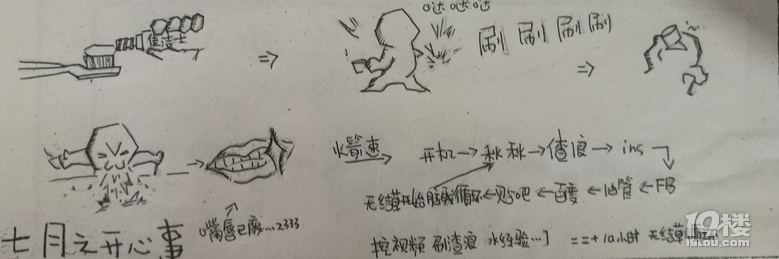 哒哒哒
佳洁士
刷 刷 刷 刷
火箭速 开机→秋秋→渣浪→ins
FB→油管→百度→贴吧→无结草开始脑残循环
嘴唇已废…2333
七月之开心事
挖视频 刷渣浪 水经验…]
==+10小时 无结草
19楼
19lou.com